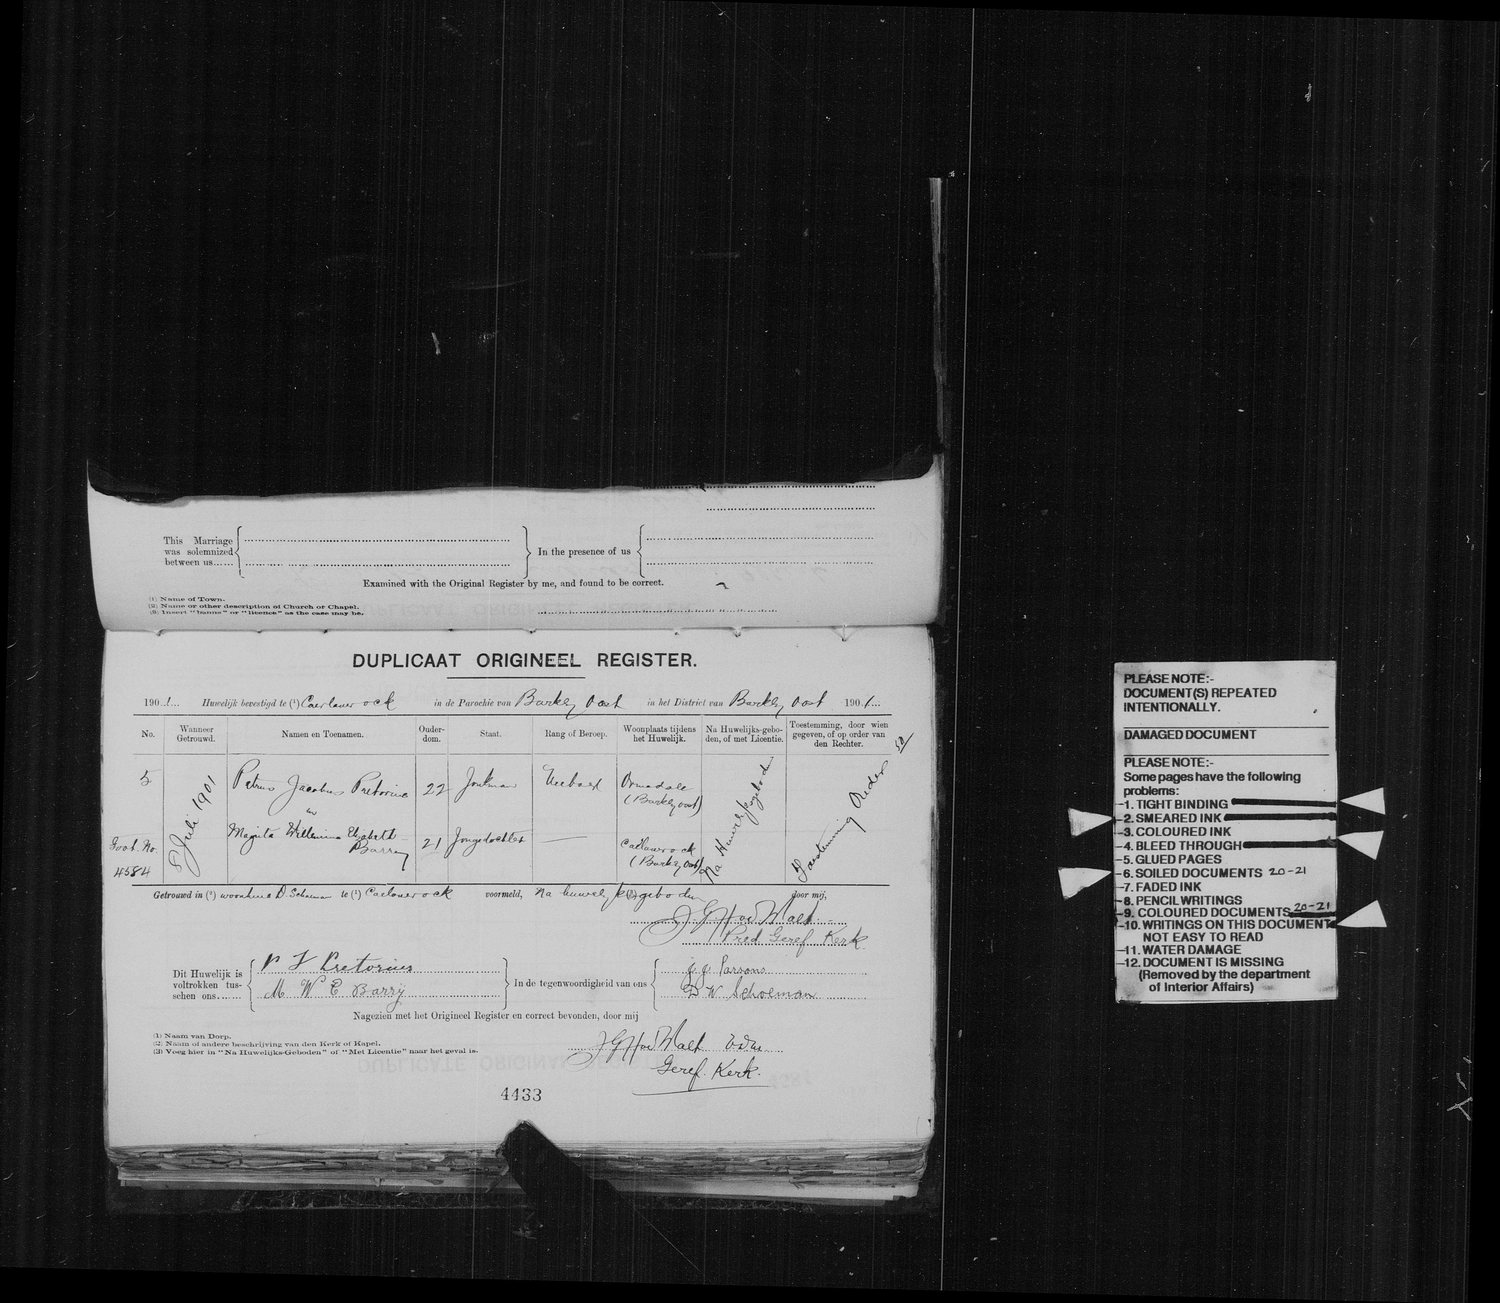 This Marriage
was solemnized
between us......
In the presence of us
Examined with the Original Register by me, and found to be correct.
(1) Name of Town.
(2) Name or other description of Church or Chapel.
(3) Insert "banns" or "licence" as the case may be.
DUPLICAAT ORIGINEEL REGISTER.
190 1... Huwelijk bevestigd te (1) Caerlaverock in de Parochie van Barkly Oost in het District van Barkly Oost 190 1...
No. Wanneer Getrouwd. Namen en Toenamen. Ouderdom. Staat. Rang of Beroep. Woonplaats tijdens het Huwelijk. Na Huwelijks-geboden, of met Licentie. Toestemming, door wien gegeven, of op order van den Rechter.
5 8 Juli 1901 Petrus Jacobus Pretorius 22 Jonkman Veeboer Ormsdale (Barkly Oost) Na Huwelijksgeboden Toestemming Ouders
en
Govt. No. 4384 Magrita Willemina Elizabeth Barry 21 Jongedochter — Caerlaverock (Barkly Oost)
Getrouwd in (2) woonhuis D Schoeman te (1) Caerlaverock voormeld, Na huwelijks (3) geboden door mij,
Pred Geref Kerk
Dit Huwelijk is
voltrokken tus-
schen ons......
P J Pretorius
M W E Barry
In de tegenwoordigheid van ons
J J Parsons
D W Schoeman
Nagezien met het Origineel Register en correct bevonden, door mij
(1) Naam van Dorp.
(2) Naam of andere beschrijving van den Kerk of Kapel.
(3) Voeg hier in "Na Huwelijks-Geboden" of "Met Licentie" naar het geval is.
Geref. Kerk.
4433
PLEASE NOTE:-
DOCUMENT(S) REPEATED
INTENTIONALLY.
DAMAGED DOCUMENT
PLEASE NOTE:-
Some pages have the following
problems:
1. TIGHT BINDING
2. SMEARED INK
3. COLOURED INK
4. BLEED THROUGH
5. GLUED PAGES
6. SOILED DOCUMENTS 20-21
7. FADED INK
8. PENCIL WRITINGS
9. COLOURED DOCUMENTS 20-21
10. WRITINGS ON THIS DOCUMENT
NOT EASY TO READ
11. WATER DAMAGE
12. DOCUMENT IS MISSING
(Removed by the department
of Interior Affairs)